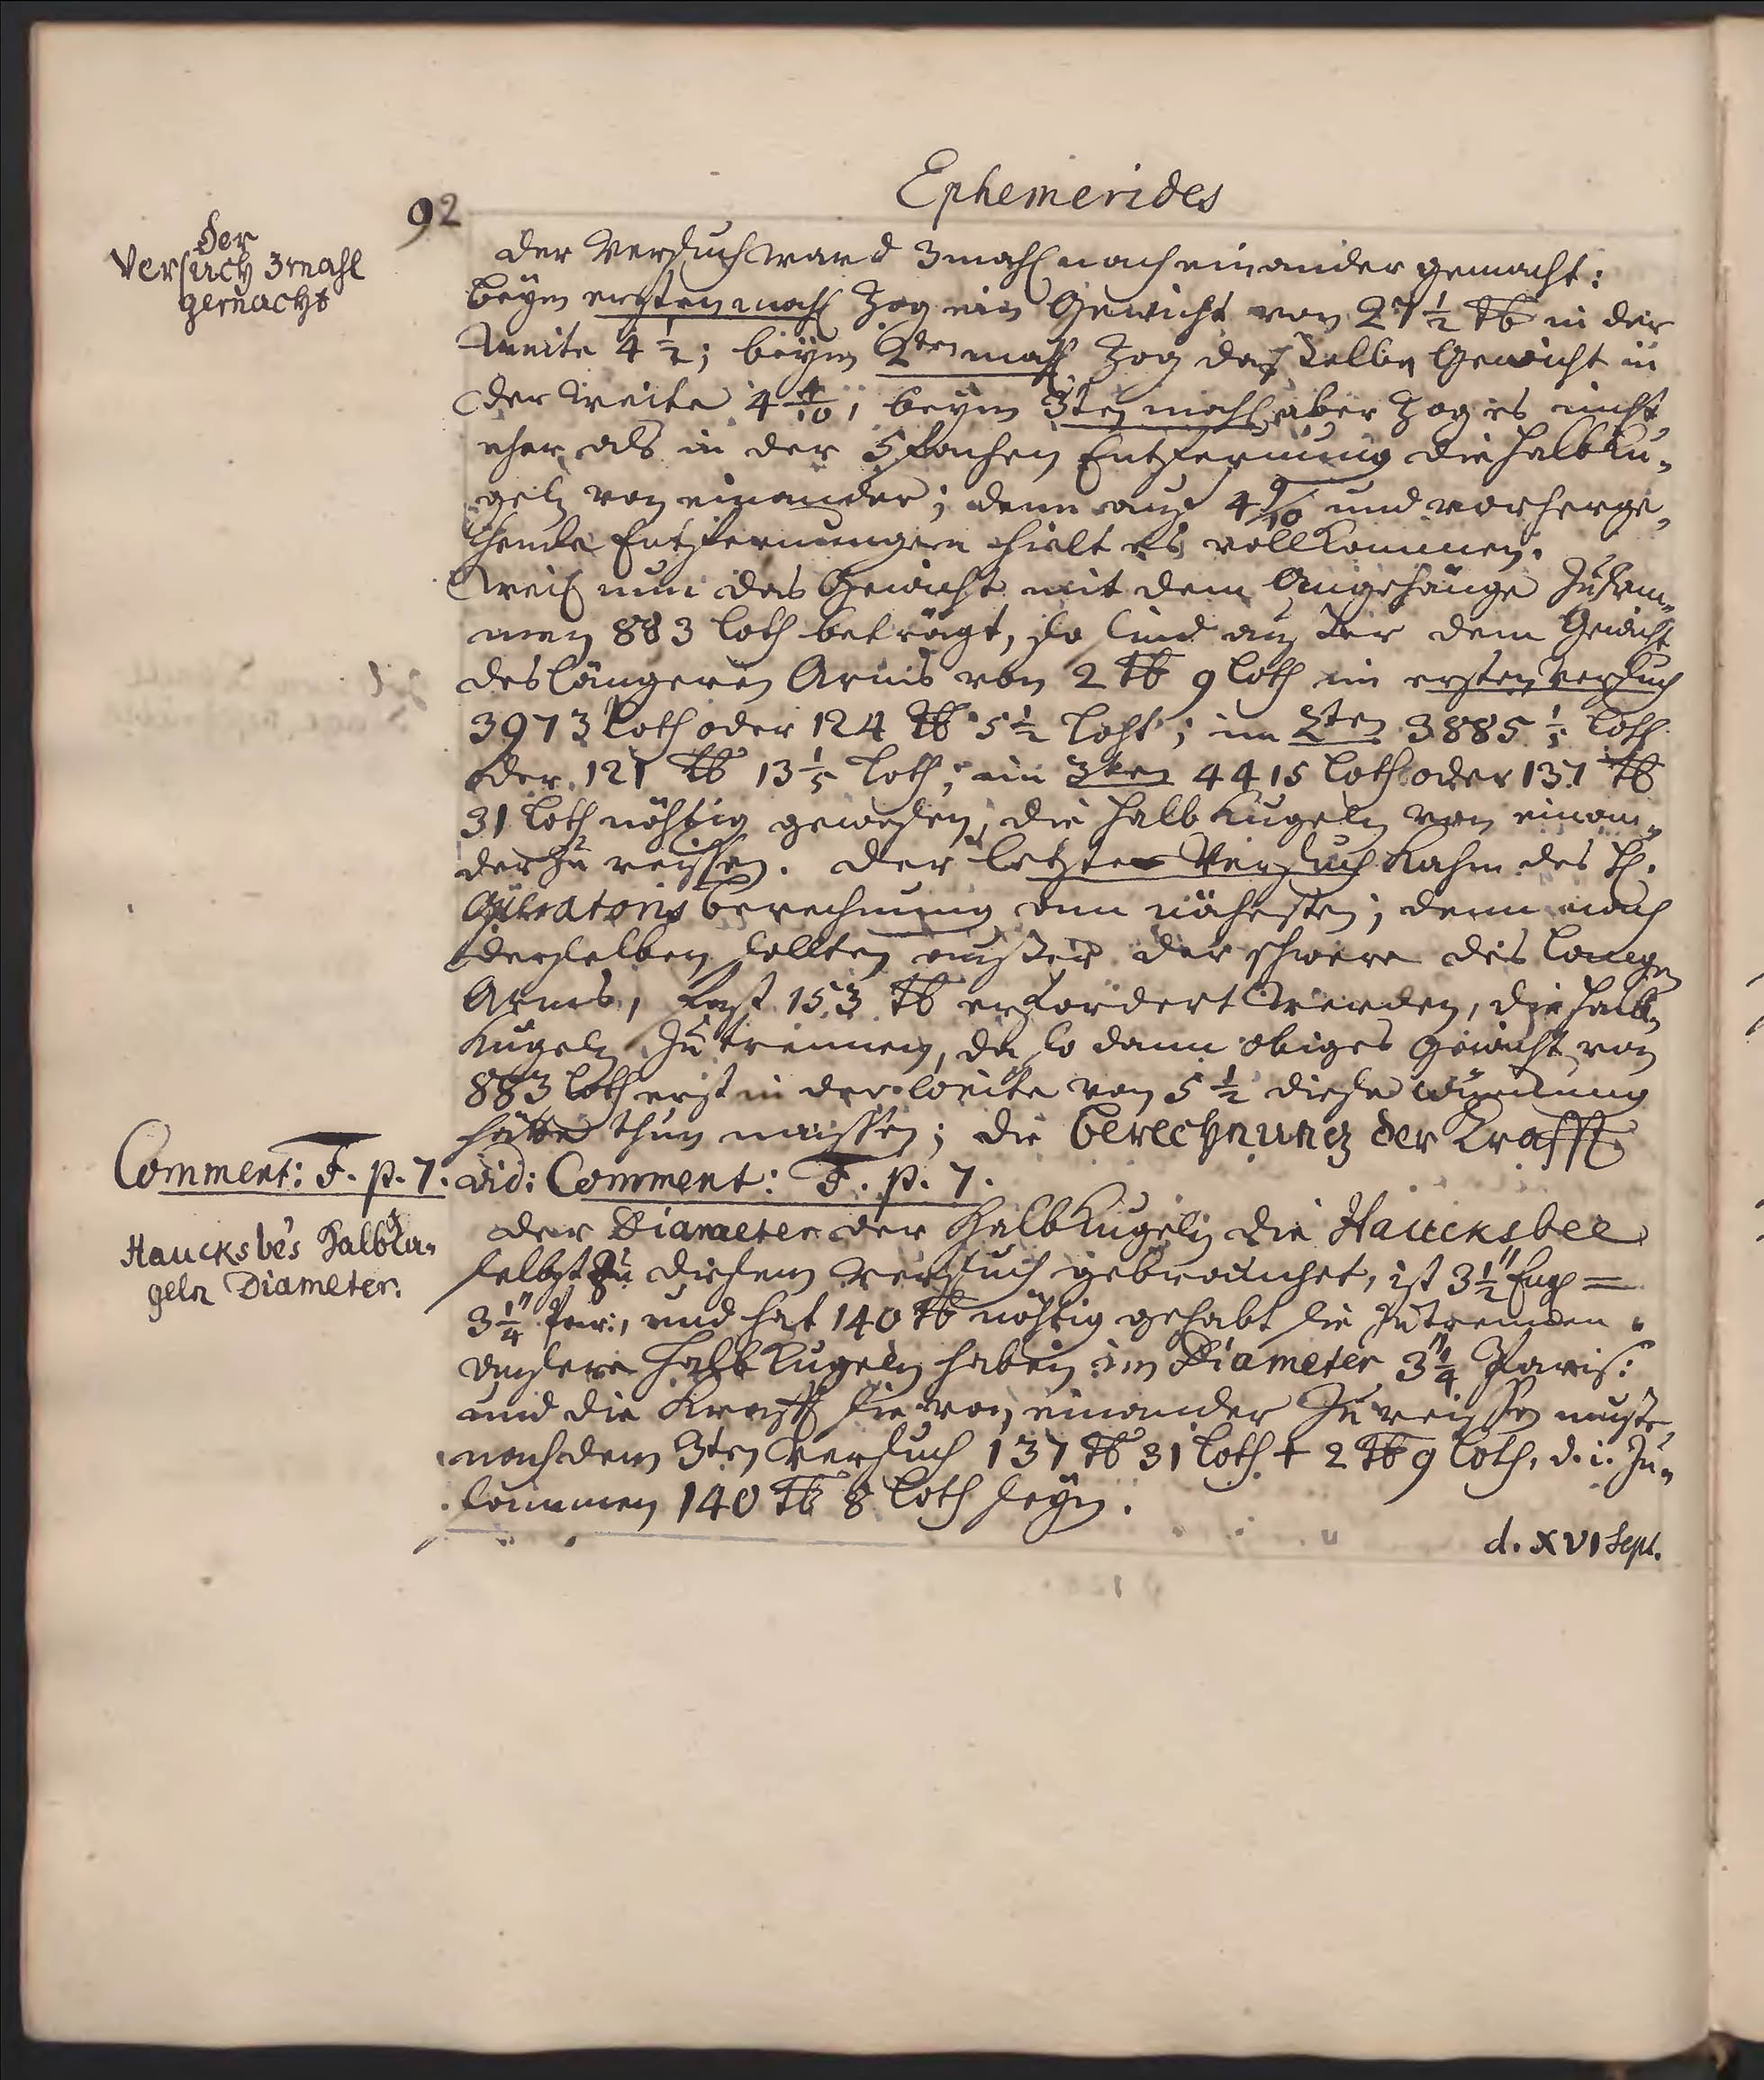 Ephemerides
92
der
Versuch 3mahl
gemacht
der Versuch ward 3mahl nach einander gemacht:
beÿm ersten mahl zog ein Gewicht von 27 1/2 ℔ in der
Weite 4 1/2; beÿm 2ten mahl zog dasselbe Gewicht in
der Weite 4 4/10, beÿm 3ten mahl aber zog es nicht
eher als in der 5fachen Entfernung die Halbku-
geln von einander; denn auf 4 9/10 und vorherge-
hende Entfernungen hielt es vollkommen.
Weil nun das Gewicht mit dem Angehänge zusam-
men 883 Loth beträgt, so sind außer dem Gewicht
des längeren Arms von 2 ℔ 9 Loth im ersten Versuch
3973 Loth oder 124 ℔ 5 1/2 Loht; im 2ten 3885 1/5 Loth
oder 121 ℔ 13 1/5 Loth; im 3ten 4415 Loth oder 137 ℔
31 Loth nöhtig gewesen, die Halb Kugeln von einan-
der zu reissen. der letzte Versuch kahm des H.
berechnung am nähesten; denn nach
derselben sollten außer der schwere des langen
Arms, fast 153 ℔ erfordert werden, die Halb-
Kugeln zu trennen, da so dann obiges Gewicht von
883 Loth erst in der Weite von 5 1/2 diese Würckung
hätte thun müssen; die berechnung der Krafft
Comment: F. p. 7. vid: Comment: F. p. 7.
Haucksbe's Halbku-
geln Diameter.
der Diameter der Halbkugeln die Haucksbee
selbst zu diesem Versuch gebrauchet, ist 3 1/2" Engl =
3 1/4" Par:, und hat 140 ℔ nöhtig gehabt sie zu trennen.
unsere Halbkugeln haben im Diameter 3 1/4" Paris:
und die Krafft sie von einander zu reissen muste
nach dem 3ten Versuch 137 ℔ 31 Loth + 2 ℔ 9 Loth, d. i. zu-
sammen 140 ℔ 8 Loth seÿn.
d. XVI Sept.